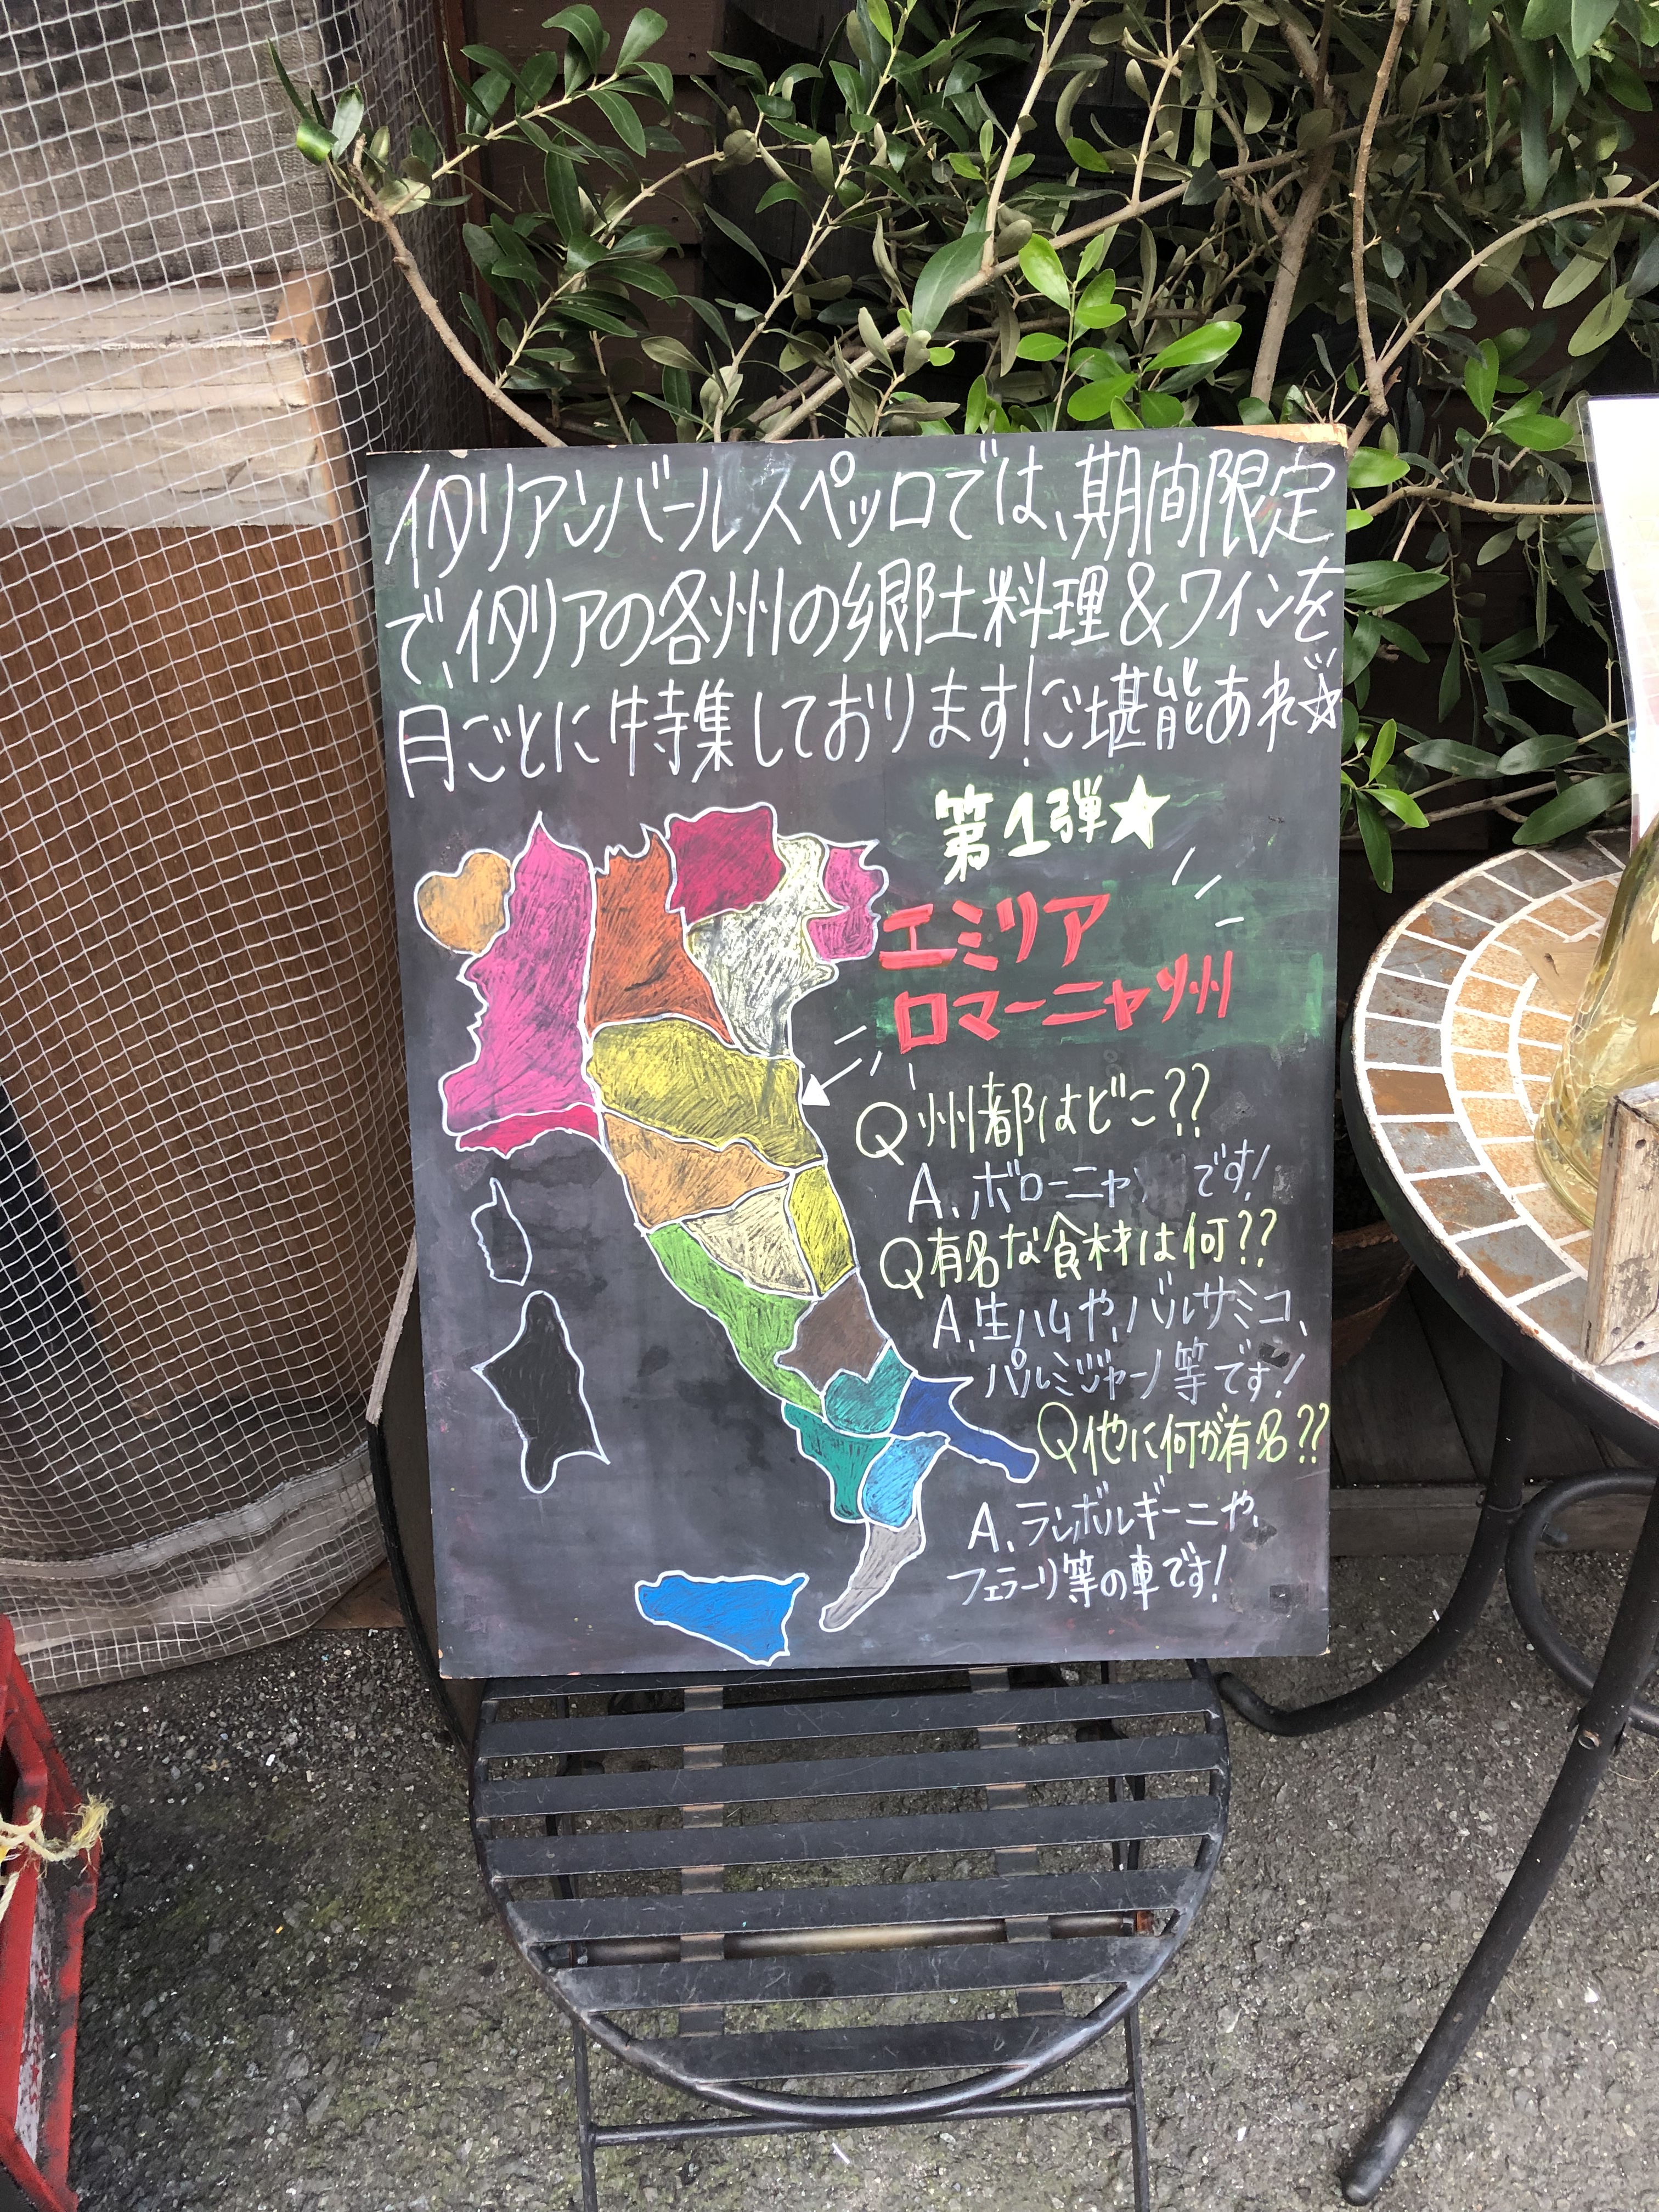 イタリアンバールスペッロでは、期間限定
で、イタリアの各州の郷土料理&ワインを
月ごとに特集しております!ご堪能あれ☆
第1弾★
エミリア
ロマーニャ州
Q 州都はどこ??
A. ボローニャ です!
Q 有名な食材は何??
A. 生ハムや、バルサミコ、
パルミジャーノ等です!
Q 他に何が有名??
A. ランボルギーニや、
フェラーリ等の車です!